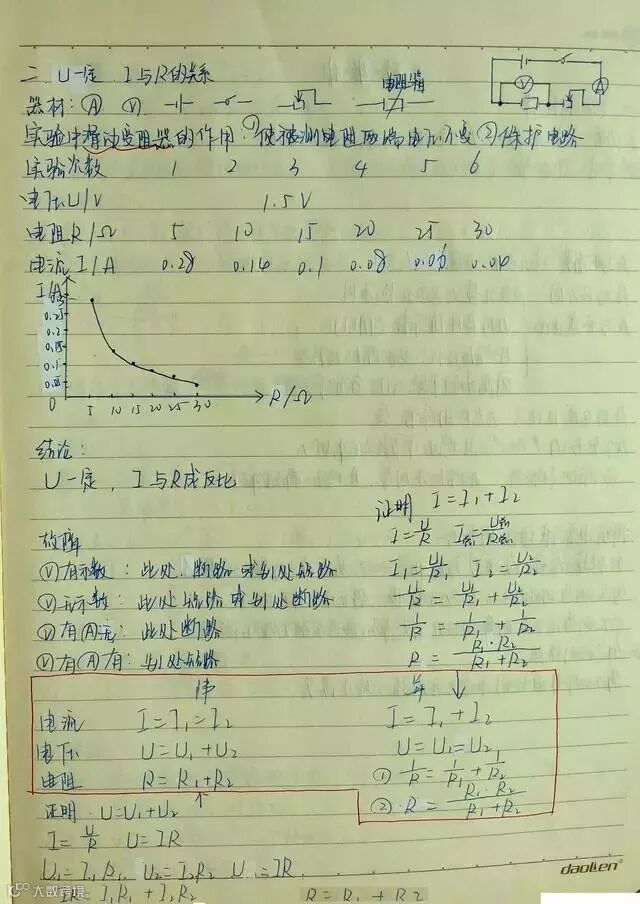 二. U一定 I与R的关系
电阻箱
器材: Ⓐ Ⓥ
实验中滑动变阻器的作用: ①使被测电阻两端电压不变 ②保护电路
实验次数 1 2 3 4 5 6
电压U/V 1.5V
电阻R/Ω 5 10 15 20 25 30
电流I/A 0.28 0.14 0.1 0.08 0.06 0.04
I/A
0.25
0.2
0.15
0.1
0.05
0 5 10 15 20 25 30 R/Ω
结论:
U一定, I与R成反比
证明 I=I₁+I₂
I=U/R
故障
Ⓥ有示数: 此处断路或别处短路
I₁=U₁/R₁ I₂=U₂/R₂
Ⓥ无示数: 此处短路或别处断路
U/R=U₁/R₁+U₂/R₂
Ⓥ有Ⓐ无: 此处断路
1/R=1/R₁+1/R₂
Ⓥ有Ⓐ有: 别处短路
R=R₁·R₂/(R₁+R₂)
串 并
电流 I=I₁=I₂ I=I₁+I₂
电压 U=U₁+U₂ U=U₁=U₂
电阻 R=R₁+R₂ ① 1/R=1/R₁+1/R₂
② R=R₁·R₂/(R₁+R₂)
证明 U=U₁+U₂
I=U/R U=IR
U₁=I₁R₁ U₂=I₂R₂ U=IR
IR=I₁R₁+I₂R₂ R=R₁+R₂
daolen
大数跨境